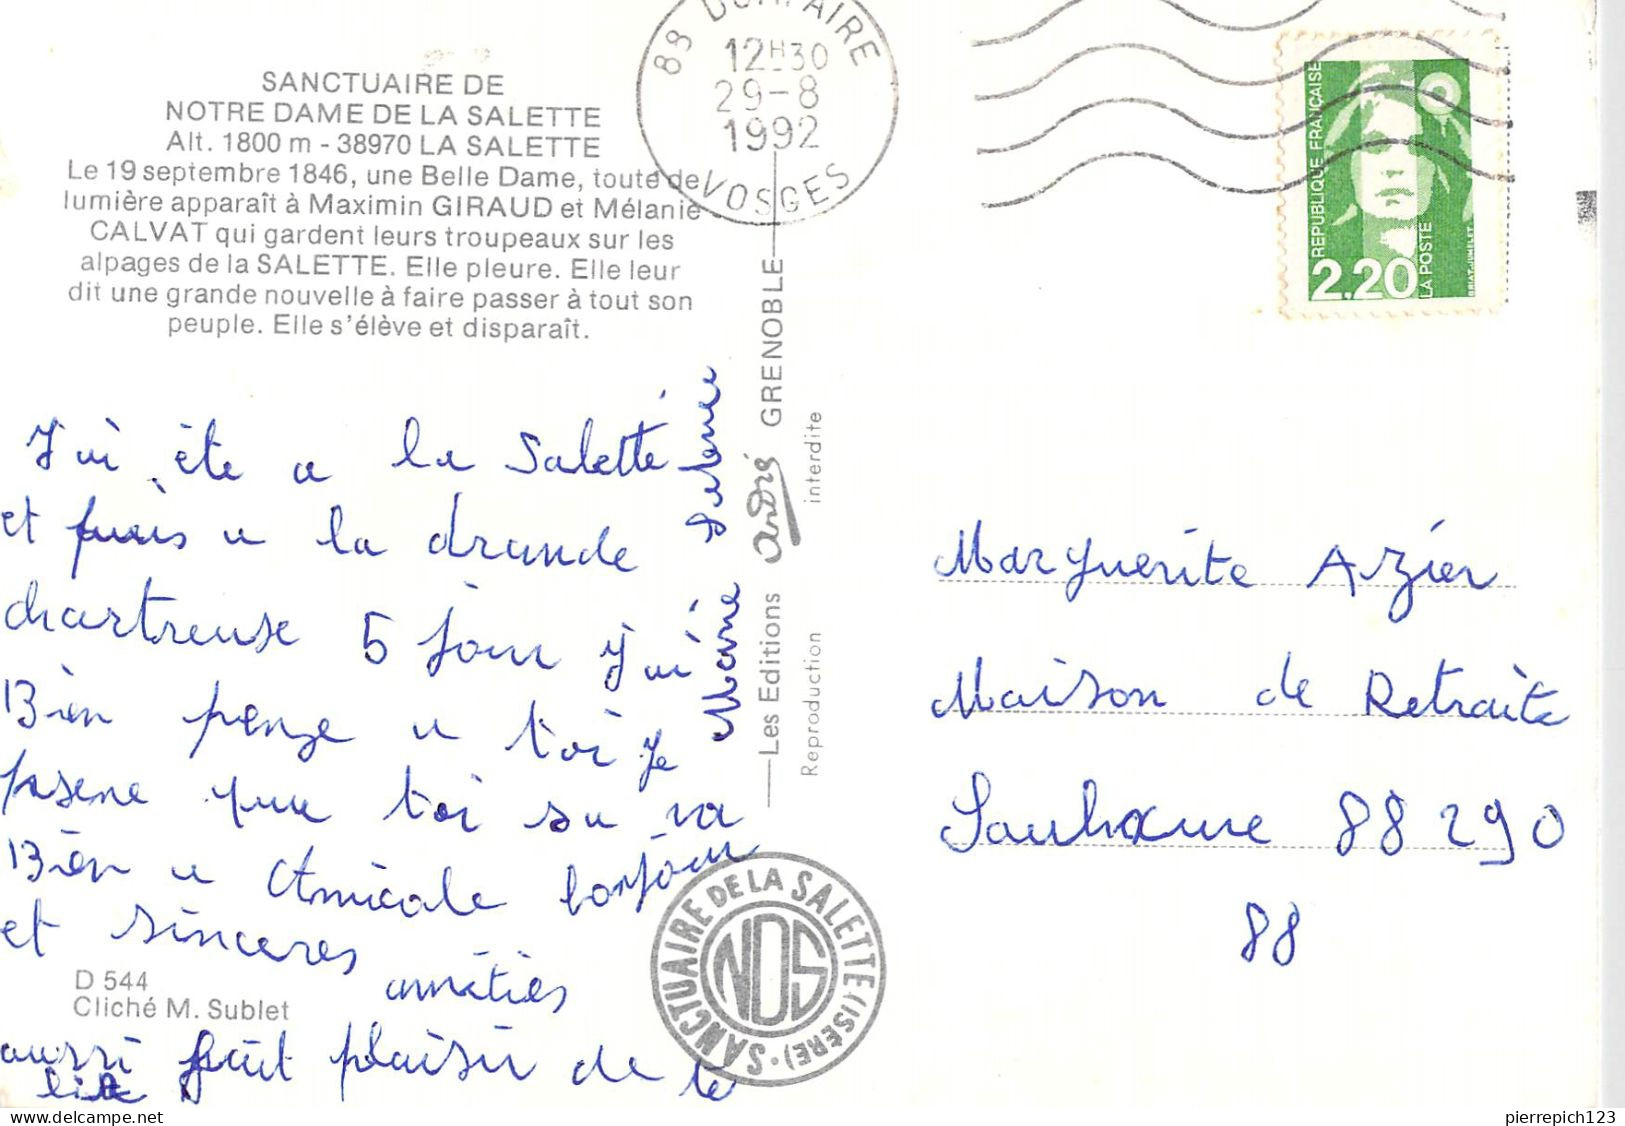 SANCTUAIRE DE
NOTRE DAME DE LA SALETTE
Alt. 1800 m - 38970 LA SALETTE
Le 19 septembre 1846, une Belle Dame, toute de
lumière apparaît à Maximin GIRAUD et Mélanie
CALVAT qui gardent leurs troupeaux sur les
alpages de la SALETTE. Elle pleure. Elle leur
dit une grande nouvelle à faire passer à tout son
peuple. Elle s'élève et disparaît.
88 DOMPAIRE
12H30
29-8
1992
VOSGES
REPUBLIQUE FRANÇAISE
LA POSTE
2,20
J'ai éte a la Salette
et puis a la Grande
chartreuse 5 jour j'ai
Bien pense a toi je
psene que toi sa va
Bien a Amicale bonjour
et sinceres amitiés
aussi fait plaisir de te
lire
Marie
Les Editions André GRENOBLE
Reproduction interdite
D 544
Cliché M. Sublet
SANCTUAIRE DE LA SALETTE (ISÈRE)
NDS
Marguerite Azier
Maison de Retraite
Saulxure 88290
88
pierrepich123